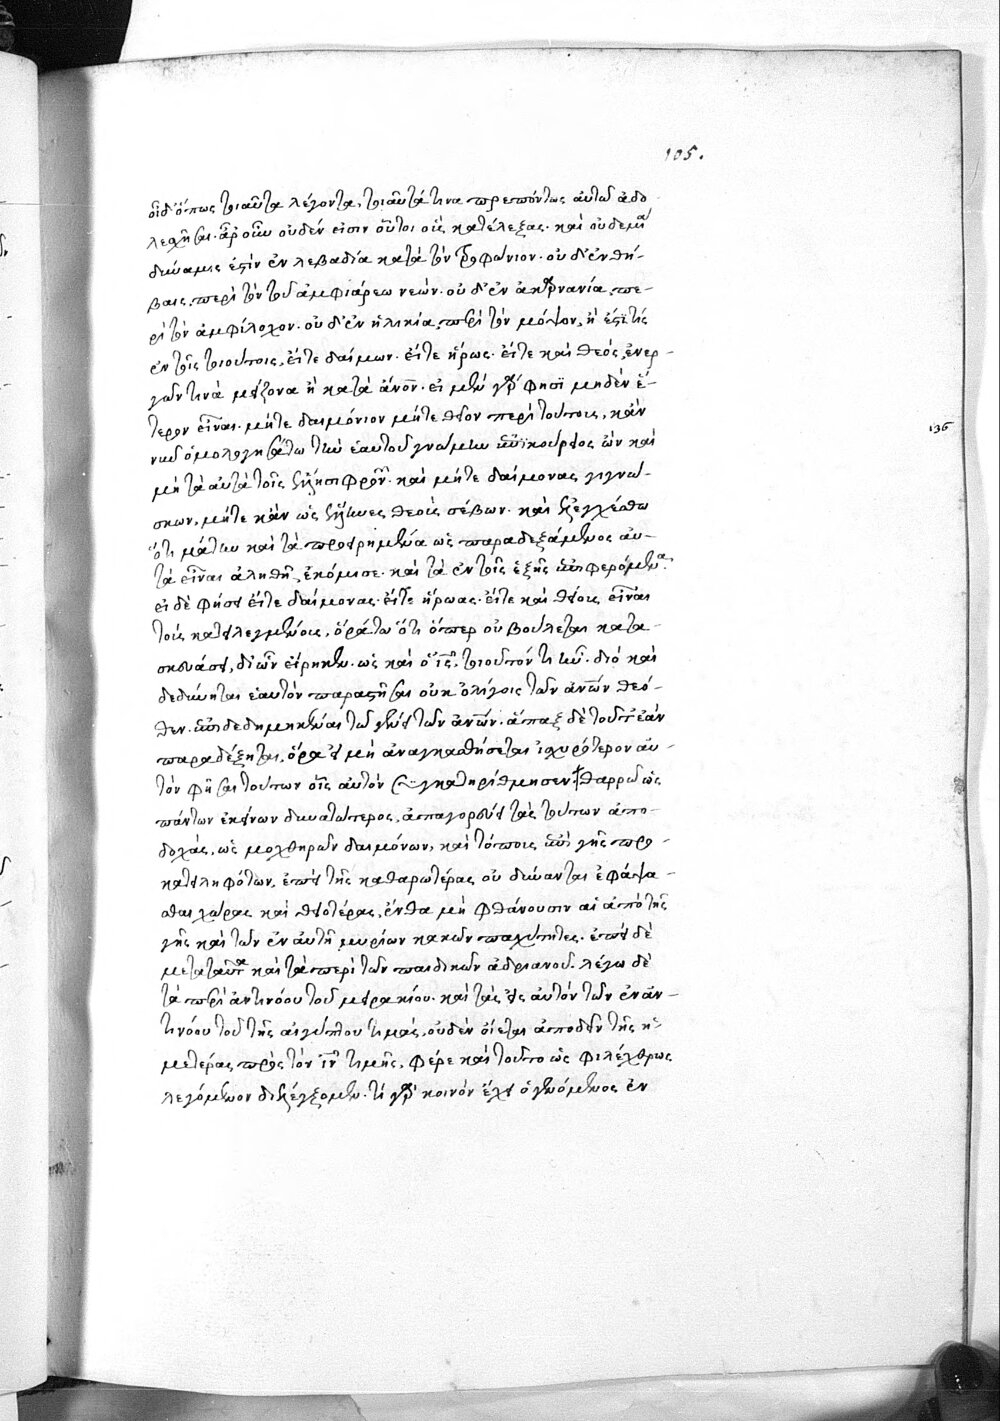 105.
οἶδ' ὅπως τοιαῦτα λέγοντα, τοιαῦτά τινα πρεπόντως αὐτῷ ἀδο
λεσχῆσαι. ἆρ' οὖν οὐδέν εἰσιν οὗτοι οἷς κατέλεξας. καὶ οὐδεμία
δύναμις ἐστὶν ἐν λεβαδία κατὰ τὸν τροφώνιον. οὐ δ' ἐν θή-
βαις, περὶ τὸν τοῦ ἀμφιάρεω νεών. οὐ δ' ἐν ἀκαρνανία, πε-
ρὶ τὸν ἀμφίλοχον. οὐ δ' ἐν κιλικία, περὶ τὸν μόψον, ἢ ἐστί τίς
ἐν τοῖς τοιούτοις, εἴτε δαίμων. εἴτε ἥρως. εἴτε καὶ θεός, ἐνερ-
γῶν τινὰ μείζονα ἢ κατὰ ἄνον. εἰ μὲν γὰρ φησὶ μηδὲν ἕ-
τερον εἶναι. μήτε δαιμόνιον μήτε θεῖον περὶ τούτοις, κἂν
νῦν ὁμολογησάτω τὴν ἑαυτοῦ γνώμην ἐπικούρειος ὢν καὶ
μὴ τὰ αὐτὰ τοῖς ἕλλησι φρονῶν. καὶ μήτε δαίμονας γιγνώ-
σκων, μήτε κἂν ὡς ἕλληνες θεοὺς σέβων. καὶ ἐξελεγχέσθω
ὅτι μάτην καὶ τὰ προειρημένα ὡς παραδεξάμενος αὐ-
τὰ εἶναι ἀληθῆ, ἐκόμισε. καὶ τὰ ἐν τοῖς ἑξῆς ἐπιφερόμενα.
εἰ δὲ φήσει εἴτε δαίμονας. εἴτε ἥρωας. εἴτε καὶ θεοὺς εἶναι
τοὺς κατειλεγμένους, ὁράτω ὅτι ὅπερ οὐ βούλεται κατα-
σκευάσει, δι' ὧν εἴρηκεν. ὡς καὶ ὁ ἰς, τοιοῦτόν τι ἦν. διὸ καὶ
δεδύνηται ἑαυτὸν παραστῆσαι οὐκ ὀλίγοις τῶν ἀνων θεό-
θεν. ἐπιδεδημηκέναι τῷ γένει τῶν ἀνων. ἅπαξ δὲ τοῦτ' ἐὰν
παραδέξηται, ὅρα εἰ μὴ ἀναγκασθήσεται ἰσχυρότερον αὐ-
τὸν φῆσαι τούτων οἷς αὐτὸν συγκατηρίθμησεν. θαρρῶ ὡς
πάντων ἐκείνων δυνατώτερος, ἀπαγορεύει τὰς τούτων ἀπο-
δοχὰς, ὡς μοχθηρῶν δαιμόνων, καὶ τόπους ἐπὶ γῆς προ-
κατειληφότων, ἐπεὶ τῆς καθαρωτέρας οὐ δύνανται ἐφάψα-
σθαι χώρας καὶ θειοτέρας, ἔνθα μὴ φθάνουσιν αἱ ἀπὸ τῆς
γῆς καὶ τῶν ἐν αὐτῇ μυρίων κακῶν παχύτητες. ἐπεὶ δὲ
μετὰ ταῦτα καὶ τὰ περὶ τῶν παιδικῶν ἀδριανοῦ. λέγω δὲ
τὰ περὶ ἀντινόου τοῦ μειρακίου. καὶ τὰς εἰς αὐτὸν τῶν ἐν ἀν-
τινόου τοῦ τῆς αἰγύπτου τιμὰς, οὐδὲν οἴεται ἀποδεῖν τῆς ἡ-
μετέρας πρὸς τὸν ιν τιμῆς, φέρε καὶ τοῦτο ὡς φιλέχθρως
λεγόμενον διελέγξομεν. τί γὰρ κοινὸν ἔχει ὁ γενόμενος ἐν
136